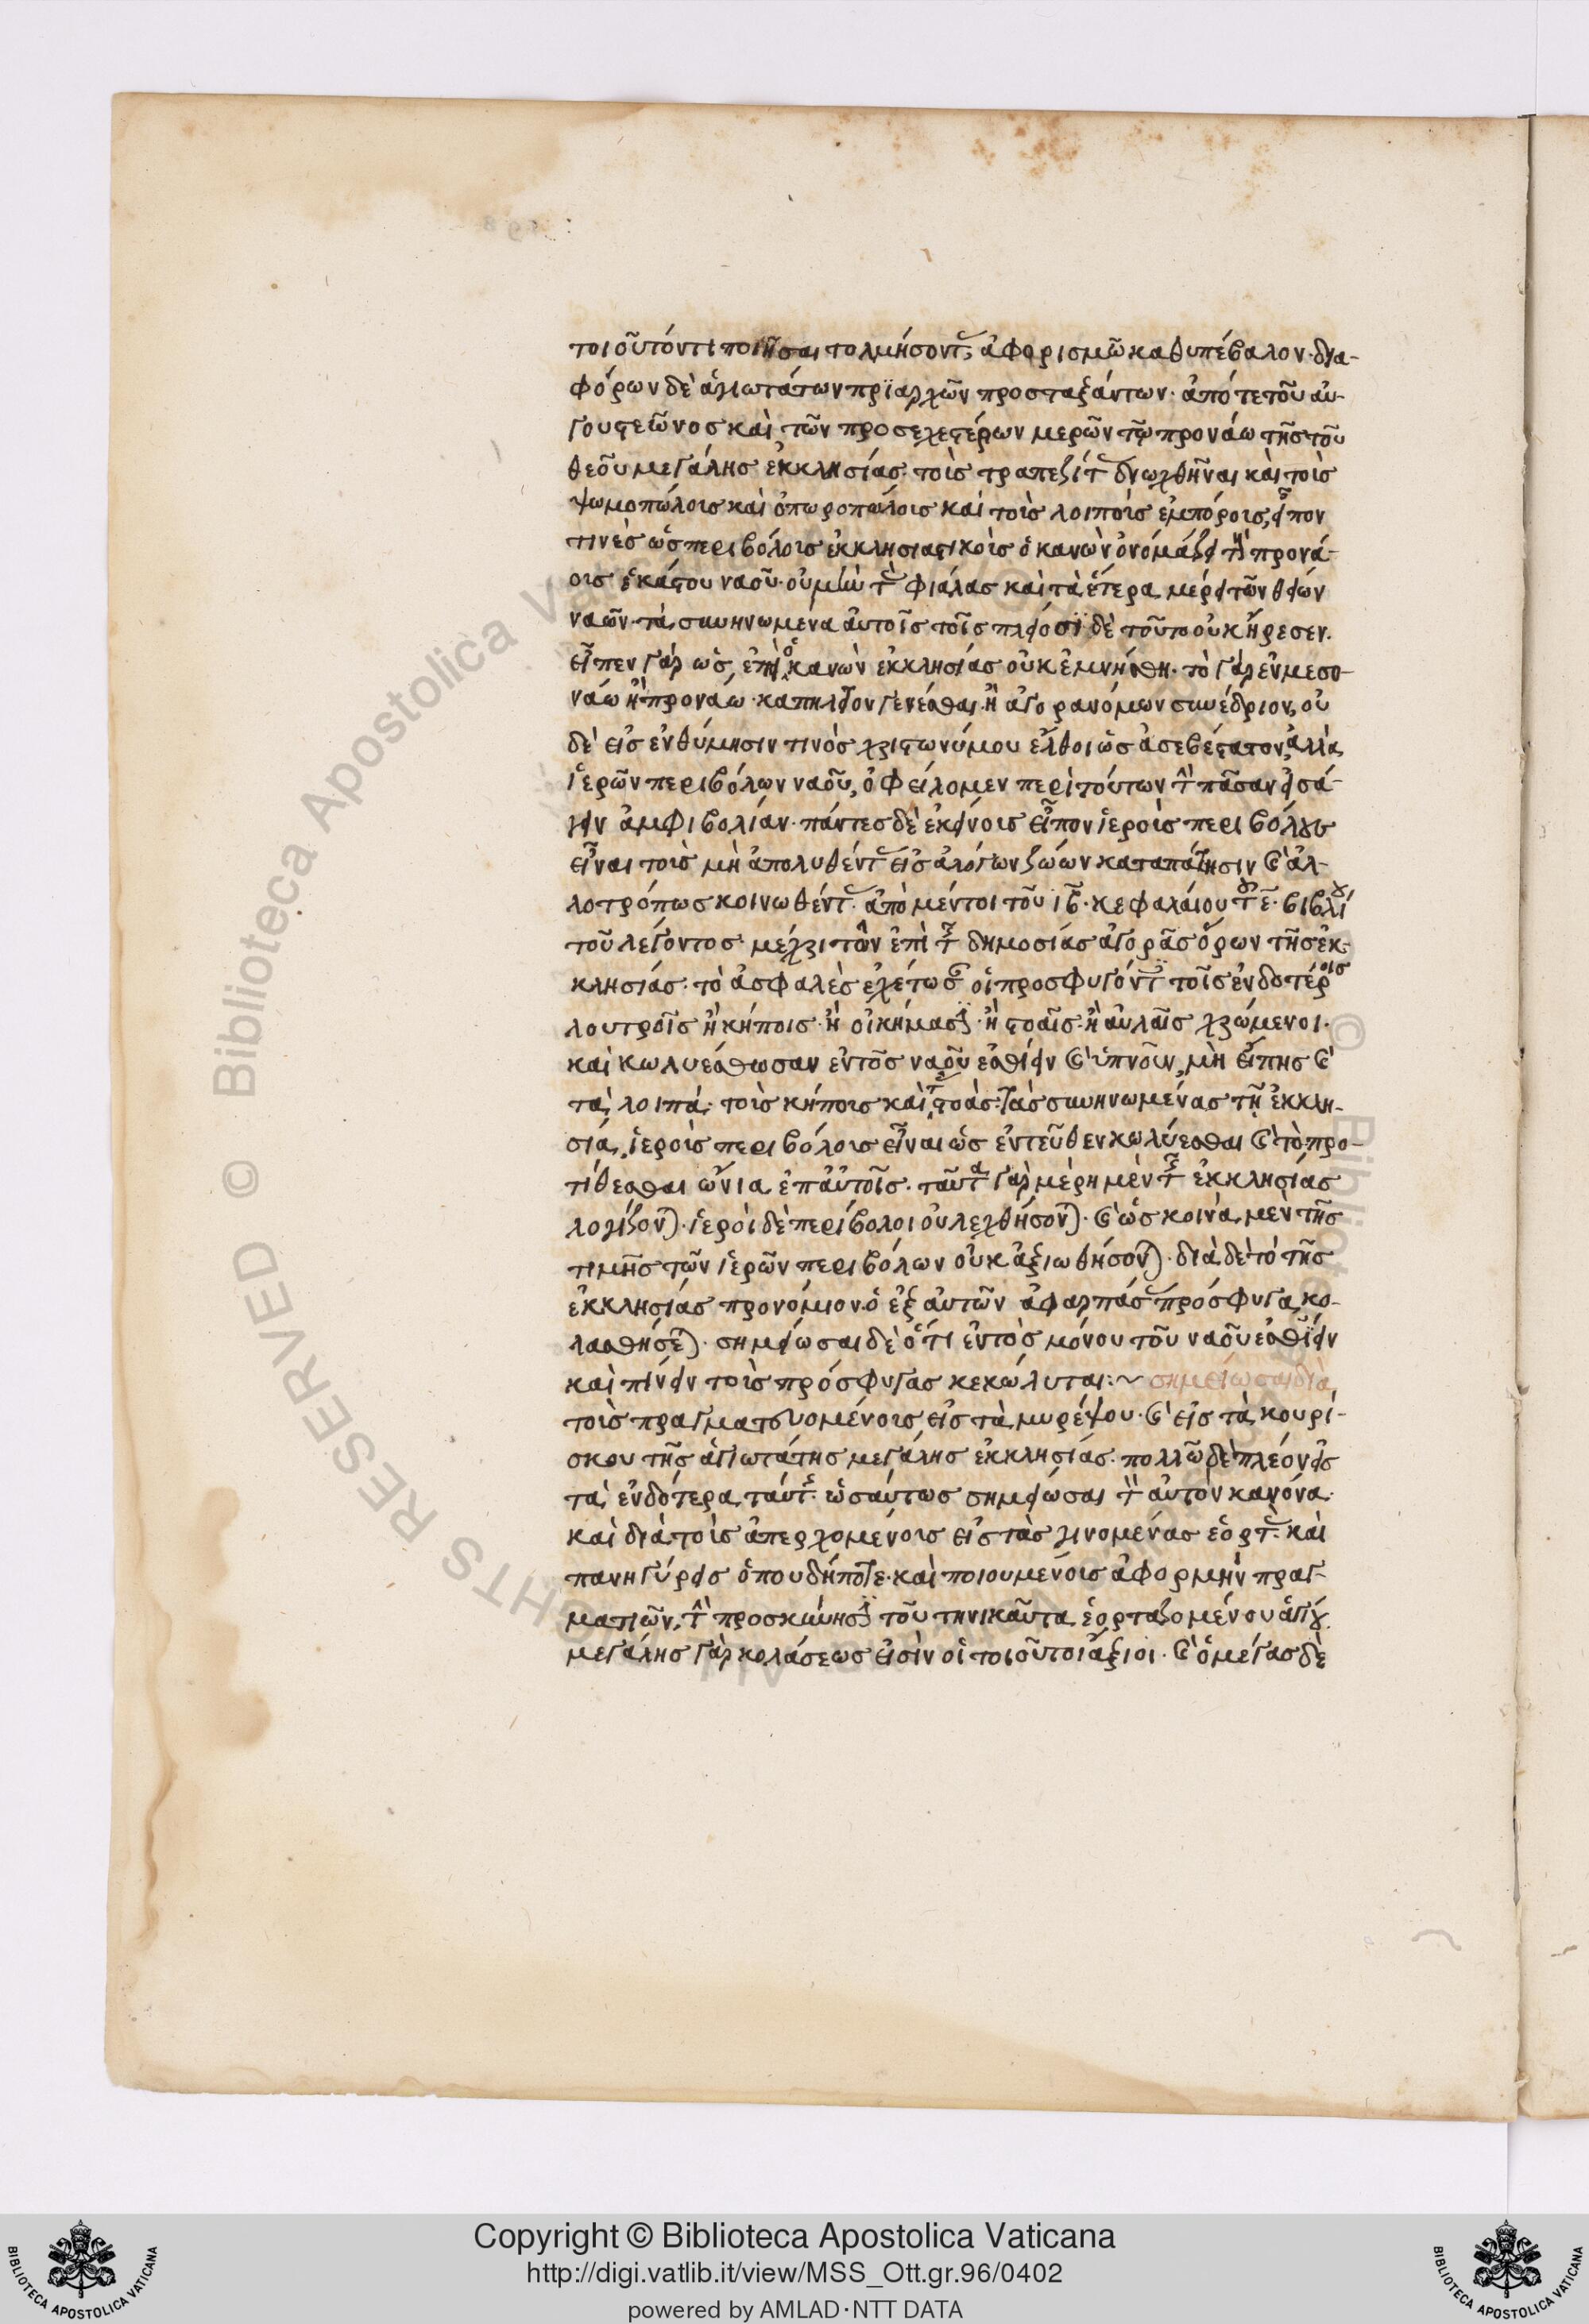 τοιοῦτόν τι ποιῆσαι τολμήσοντ, ἀφορισμῶ καθυπέβαλον· δια-
φόρων δὲ ἁγιωτάτων πριαρχῶν προσταξάντων· ἀπό τε τοῦ αὐ-
γουστεῶνος καὶ τῶν προσεχεστέρων μερῶν τῶ προνάω τῆς τοῦ
θεοῦ μεγάλης ἐκκλησίας· τοὺς τραπεζίτ διωχθῆναι καὶ τοὺς
ψωμοπώλους καὶ ὀπωροπώλους καὶ τοὺς λοιποὺς ἐμπόρους, εἶπον
τινὲς ὡς περιβόλους ἐκκλησιαστικοὺς ὁ κανὼν ὀνομάζει τοὺς προνά-
ους ἑκάστου ναοῦ· οὐ μὴν τὰς φιάλας καὶ τὰ ἕτερα μέρη τῶν θείων
ναῶν· τὰ συνηνωμένα αὐτοῖς τοῖς πλείοσι δὲ τοῦτο οὐκ ἤρεσεν.
εἶπεν γὰρ ὡς, ἐπεὶ ὁ κανὼν ἐκκλησίας οὐκ ἐμνήσθη· τὸ γὰρ ἐν μεσο-
νάω ἢ προνάω· καπηλεῖον γενέσθαι ἢ ἀγορανόμων συνέδριον, οὐ
δὲ εἰς ἐνθύμησιν τινὸς χριστωνύμου ἔλθοι ὡς ἀσεβέστατον, ἀλλὰ
ἱερῶν περιβόλων ναοῦ, ὀφείλομεν περὶ τούτων τὴν πᾶσαν εἰσά-
γειν ἀμφιβολίαν· πάντες δὲ ἐκείνους εἶπον ἱεροὺς περιβόλους
εἶναι τοὺς μὴ ἀπολυθέντ εἰς ἀλόγων ζώων καταπάτησιν καὶ ἀλ-
λοτρόπως κοινωθέντ· ἀπὸ μέντοι τοῦ ιβ· κεφαλαίου τοῦ ε· βιβλίου
τοῦ λέγοντος· μέχρι τῶν ἐπὶ τῆς δημοσίας ἀγορᾶς ὅρων τῆς ἐκ-
κλησίας· τὸ ἀσφαλὲς ἐχέτωσαν οἱ προσφυγόντες τοῖς ἐνδοτέροις
λουτροῖς ἢ κήποις· ἢ οἰκήμασι· ἢ στοαῖς· ἢ αὐλαῖς χρώμενοι·
καὶ κωλυέσθωσαν ἐντὸς ναοῦ ἐσθίειν καὶ ὑπνοῦν, μὴ εἴπης καὶ
τὰ λοιπά· τοὺς κήπους καὶ τὰς στοὰς· τὰς συνηνωμένας τῆ ἐκκλη-
σία, ἱεροὺς περιβόλους εἶναι ὡς ἐντεῦθεν κωλύεσθαι καὶ τὸ προ-
τίθεσθαι ὤνια ἐπ' αὐτοῖς· ταῦτα γὰρ μέρη μὲν τῆς ἐκκλησίας
λογίζονται· ἱεροὶ δὲ περίβολοι οὐ λεχθήσονται· καὶ ὡς κοινὰ μὲν τῆς
τιμῆς τῶν ἱερῶν περιβόλων οὐκ ἀξιωθήσονται· διὰ δὲ τὸ τῆς
ἐκκλησίας προνόμιον· ὁ ἐξ αὐτῶν ἀφαρπάσας πρόσφυγα, κο-
λασθήσεται· σημείωσαι δὲ ὅτι ἐντὸς μόνου τοῦ ναοῦ ἐσθίειν
καὶ πίνειν τοὺς πρόσφυγας κεκώλυται:~ σημείωσαι διὰ
τοὺς πραγματευομένους εἰς τὰ μυρέψου· καὶ εἰς τὰ κουρί-
σκου τῆς ἁγιωτάτης μεγάλης ἐκκλησίας· πολλῶ δὲ πλέον εἰς
τὰ ἐνδότερα ταύτης· ὡσαύτως σημείωσαι τὸν αὐτὸν κανόνα·
καὶ διὰ τοὺς ἀπερχομένους εἰς τὰς γινομένας ἑορτ· καὶ
πανηγύρεις ὁπουδήποτε· καὶ ποιουμένους ἀφορμὴν πραγ-
ματιῶν, τὴν προσκύνησι τοῦ τηνικαῦτα ἑορταζομένου ἁγίου
μεγάλης γὰρ κολάσεως εἰσὶν οἱ τοιοῦτοι ἄξιοι· καὶ ὁ μέγας δὲ
Copyright © Biblioteca Apostolica Vaticana
http://digi.vatlib.it/view/MSS_Ott.gr.96/0402
powered by AMLAD·NTT DATA